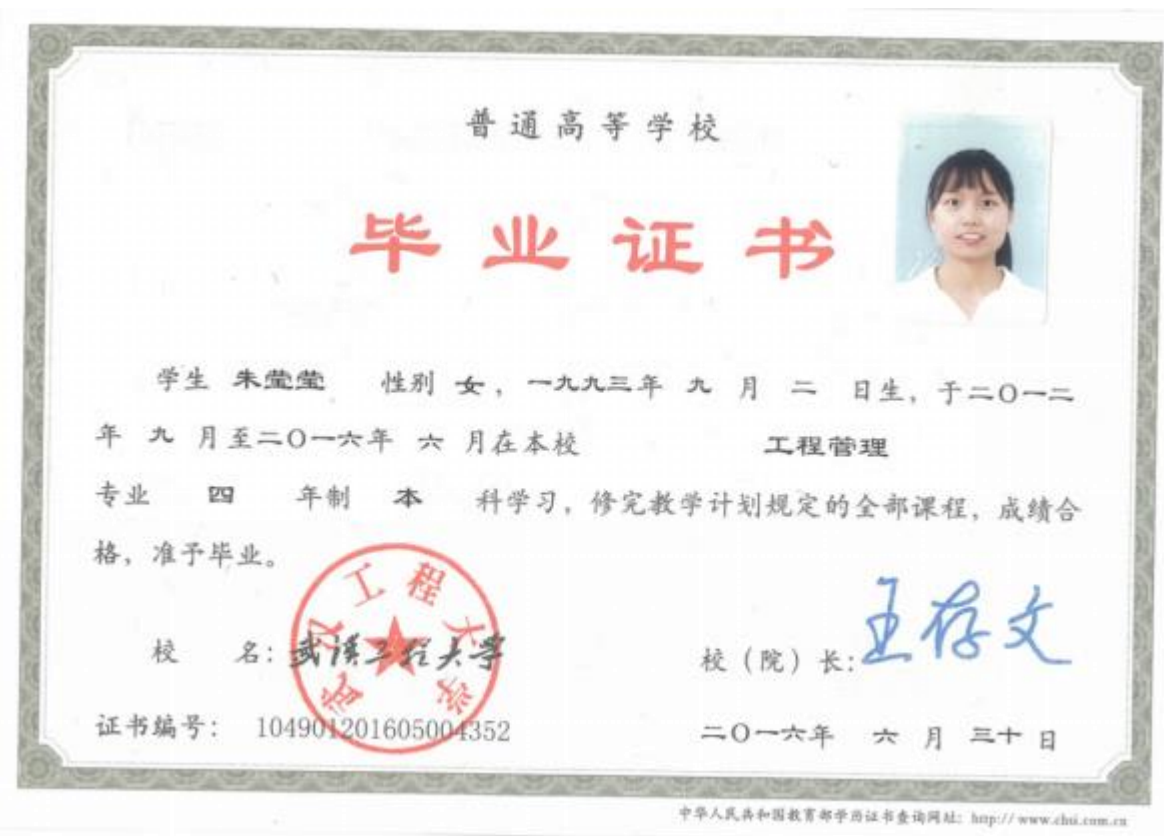 普通高等学校
毕业证书
学生 朱莹莹 性别 女，一九九三年 九 月 二 日生，于二〇一二
年 九 月至二〇一六年 六 月在本校 工程管理
专业 四 年制 本 科学习，修完教学计划规定的全部课程，成绩合
格，准予毕业。
武汉工程大学
校 名：武汉工程大学
校（院）长：王存文
证书编号： 104901201605004352
二〇一六年 六 月 三十 日
中华人民共和国教育部学历证书查询网址：http://www.chsi.com.cn